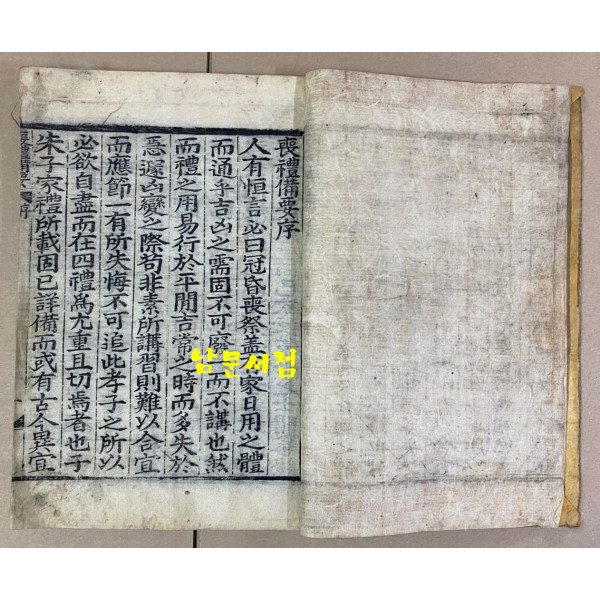 喪禮備要序
人有恒言必曰冠昏喪祭盖家日用之體
而通乎吉凶之需固不可廢一而不講也然
而禮之用易行於平閒吉常之時而多失於
悤遽凶變之際苟非素所講習則難以合宜
而應節一有所失悔不可追此孝子之所以
必欲自盡而在四禮爲尤重且切焉者也子
朱子家禮所載固已詳備而或有古今異宜
남문서점